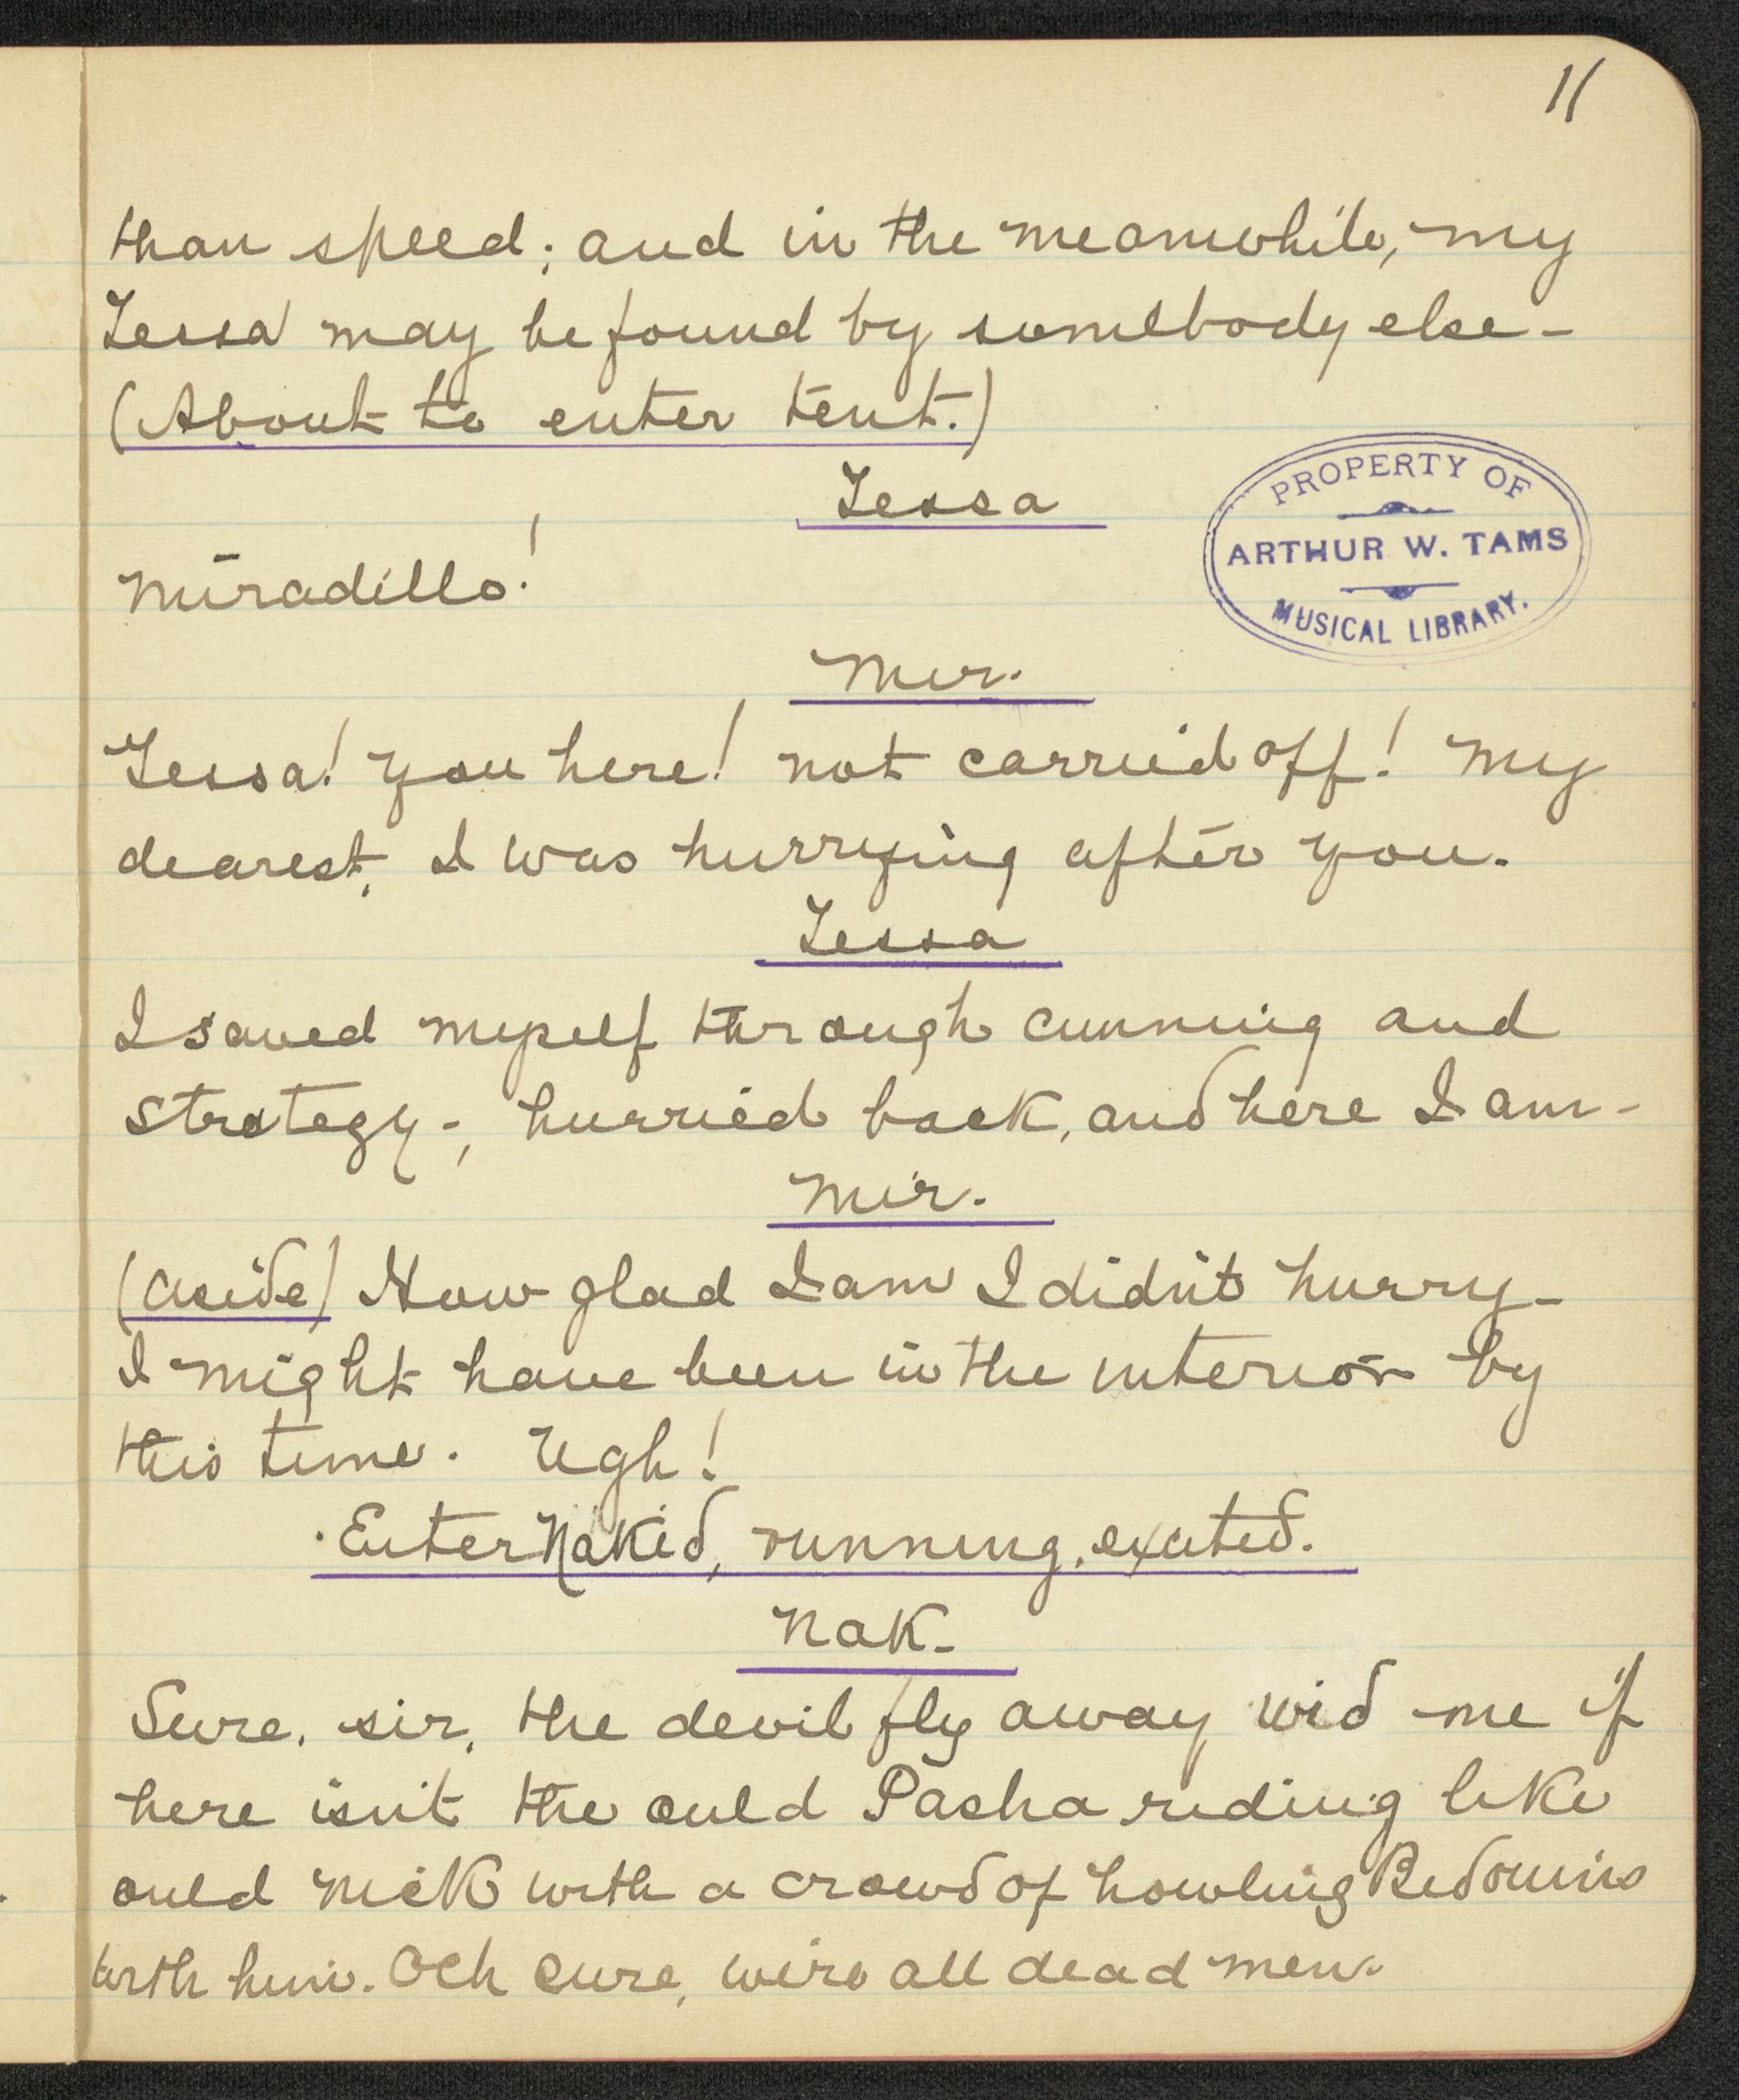 11
than speed; and in the meanwhile, my
Tessa may be found by somebody else -
(About to enter tent.)
Tessa
PROPERTY OF
ARTHUR W. TAMS
MUSICAL LIBRARY.
Miradillo!
Mir.
Tessa! you here! not carried off! My
dearest, I was hurrying after you.
Tessa
I saved myself through cunning and
strategy -, hurried back, and here I am -
Mir.
(aside) How glad I am I didn't hurry -
I might have been in the interior by
this time. Ugh!
Enter Nakid, running, excited.
Nak-
Sure, sir, the devil fly away wid me if
here isn't the ould Pasha riding like
ould Nick with a crowd of howling Bedouins
with him. Och sure, we're all dead men.